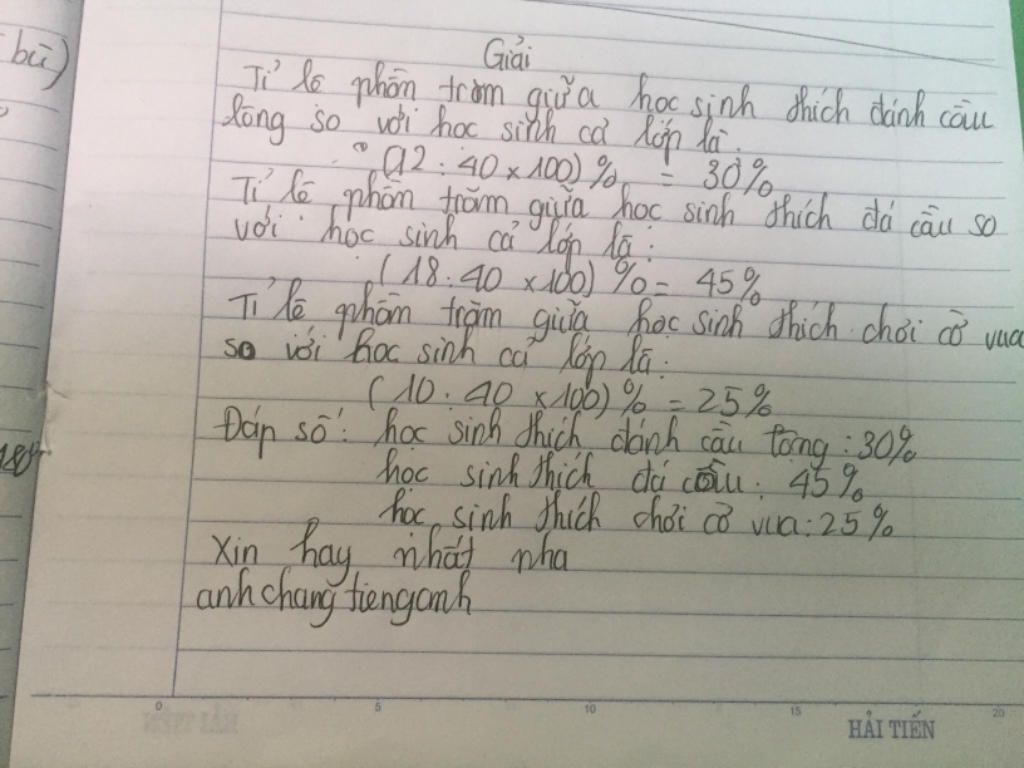 bù)
Giải
Tỉ lệ phần trăm giữa học sinh thích đánh cầu
lông so với học sinh cả lớp là:
(12 : 40 x 100) % = 30%
Tỉ lệ phần trăm giữa học sinh thích đá cầu so
với học sinh cả lớp là:
(18 : 40 x 100) % = 45%
Tỉ lệ phần trăm giữa học sinh thích chơi cờ vua
so với học sinh cả lớp là:
(10 : 40 x 100) % = 25%
Đáp số: học sinh thích đánh cầu lông : 30%
học sinh thích đá cầu : 45%
học sinh thích chơi cờ vua : 25%
Xin hay nhất nha
anhchangtienganh
0 5 10 15 20
HẢI TIẾN